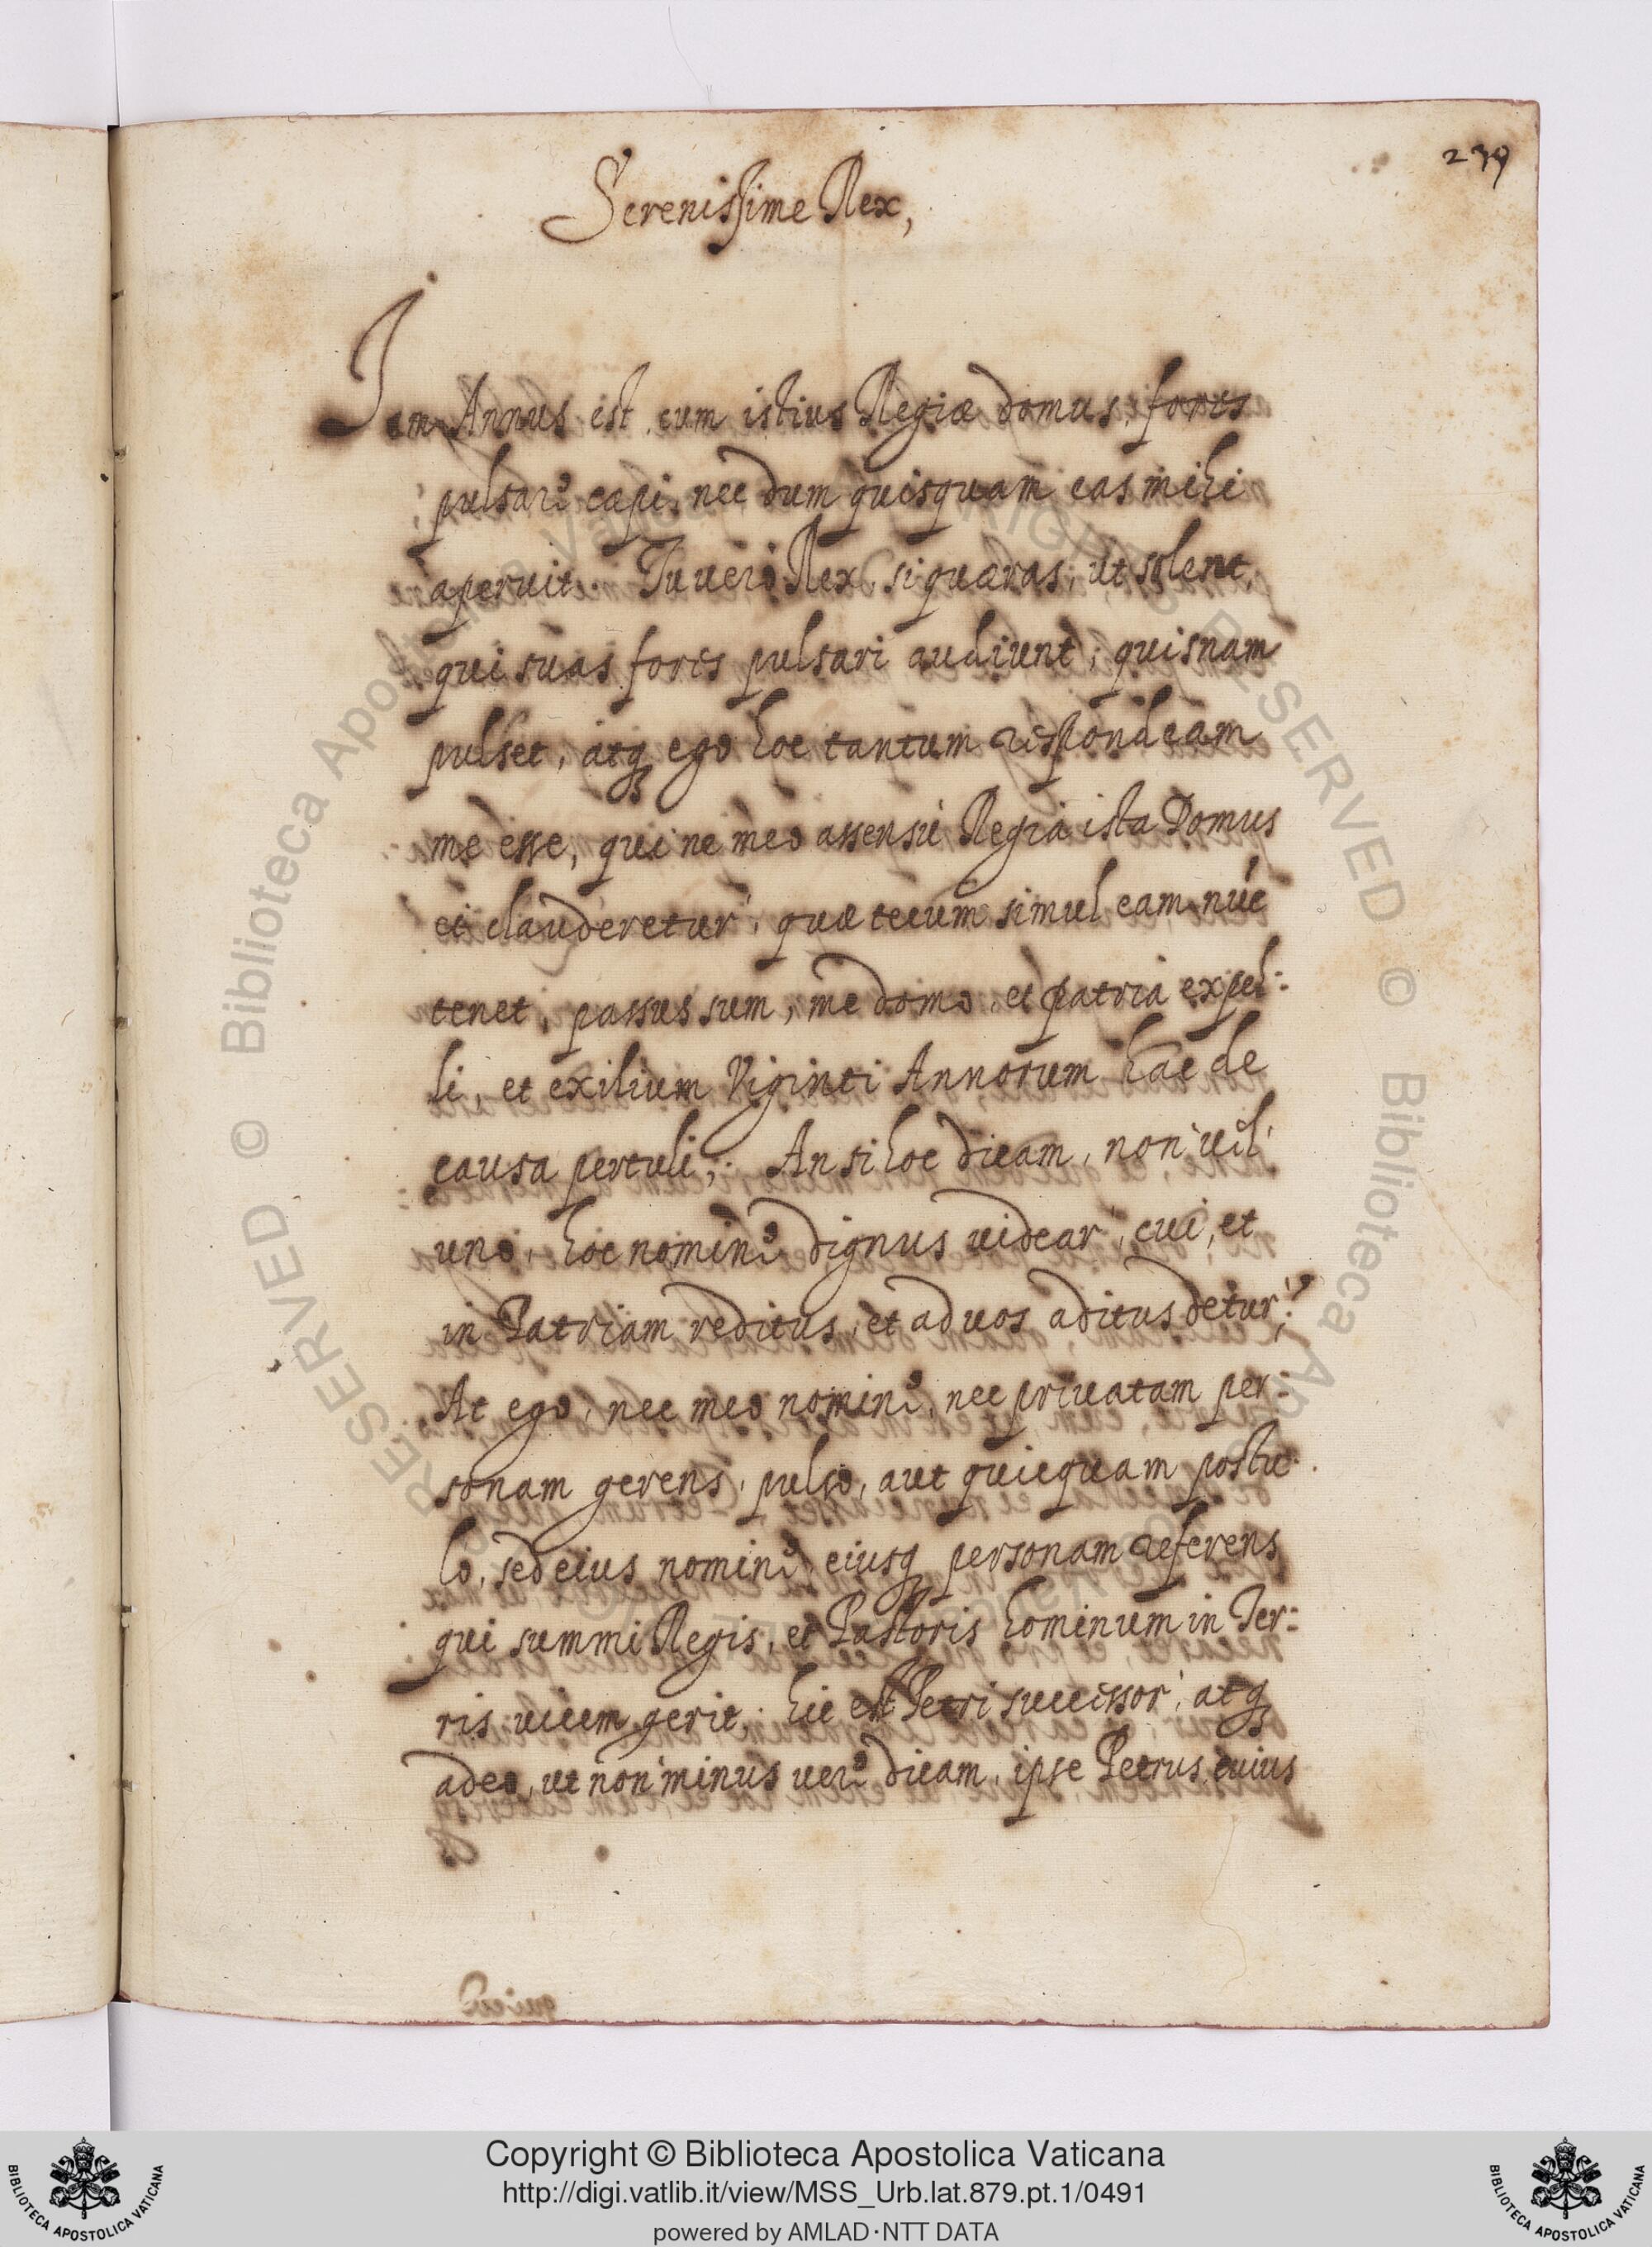 239
Serenissime Rex,
Iam Annus est, cum istius Regiæ domus, fores
pulsare cæpi, nec dum quisquam eas mihi
aperuit. Tu uero Rex, si quæras, ut solent,
qui suas fores pulsari audiunt, quisnam
pulset, atq ego hoc tantum respondeam
me esse, qui ne meo assensu Regia ista Domus
ei clauderetur, quæ tecum simul eam núc
tenet, passus sum, me domo, et patria expel:
li, et exilium Viginti Annorum hac de
causa pertuli; An si hoc dicam, non uel
uno, hoc nomine dignus uidear, cui, et
in Patriam reditus, et ad uos aditus detur?
At ego, nec meo nomine, nec priuatam per:
sonam gerens, pulso, aut quicquam postu:
lo, sed eius nomine, eiusq personam referens
qui summi Regis, et Pastoris hominum in Ter:
ris uicem gerit, hic est Petri successor, atq
adeo, ut non minus uere dicam, ipse Petrus, cuius
© Biblioteca Apostolica Vaticana
RESERVED © Biblioteca Apostolica
Copyright © Biblioteca Apostolica Vaticana
http://digi.vatlib.it/view/MSS_Urb.lat.879.pt.1/0491
powered by AMLAD·NTT DATA
BIBLIOTECA APOSTOLICA VATICANA
BIBLIOTECA APOSTOLICA VATICANA